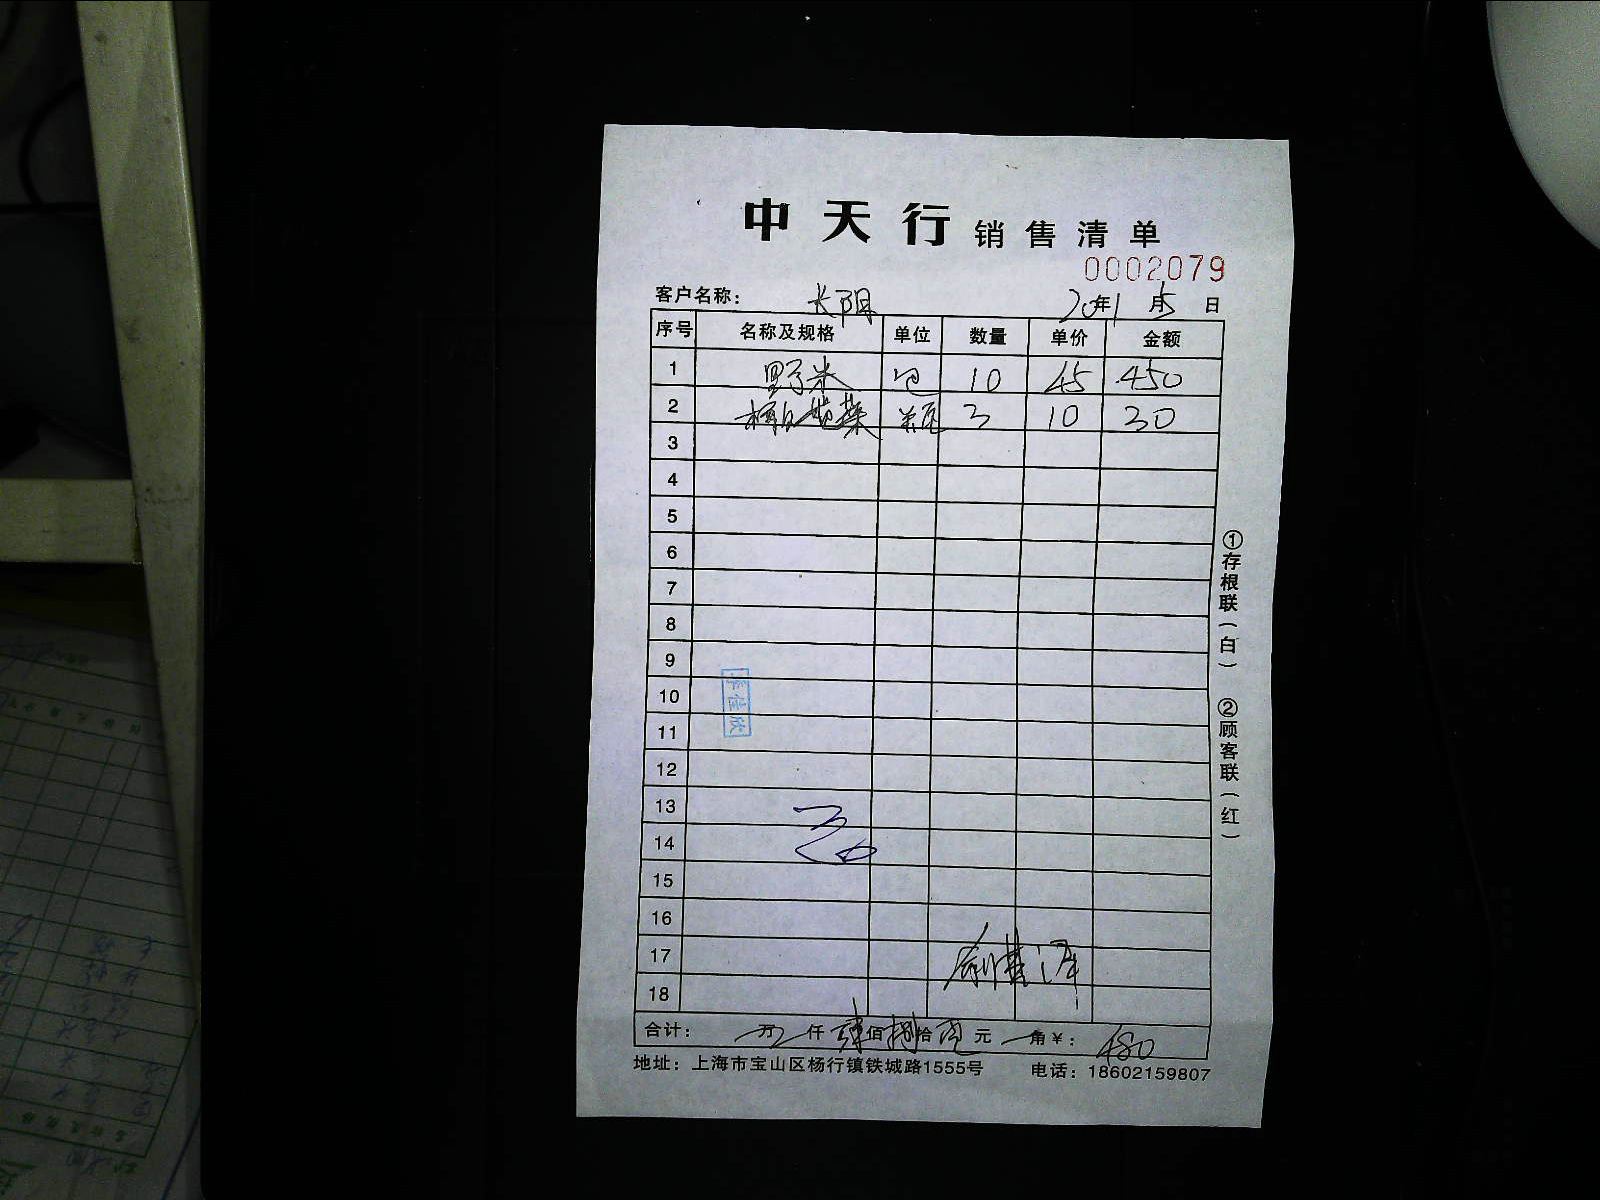 中天行 销售清单
0002079
客户名称： 长阳 20年1月5日
序号 名称及规格 单位 数量 单价 金额
1 野米 包 10 45 450
2 瓶 3 10 30
3
4
5
6
7
8
9
10
11
12
13
14
15
16
17
18
合计： 万 仟 肆佰捌拾元 角￥： 480
地址：上海市宝山区杨行镇铁城路1555号 电话：18602159807
①存根联（白） ②顾客联（红）